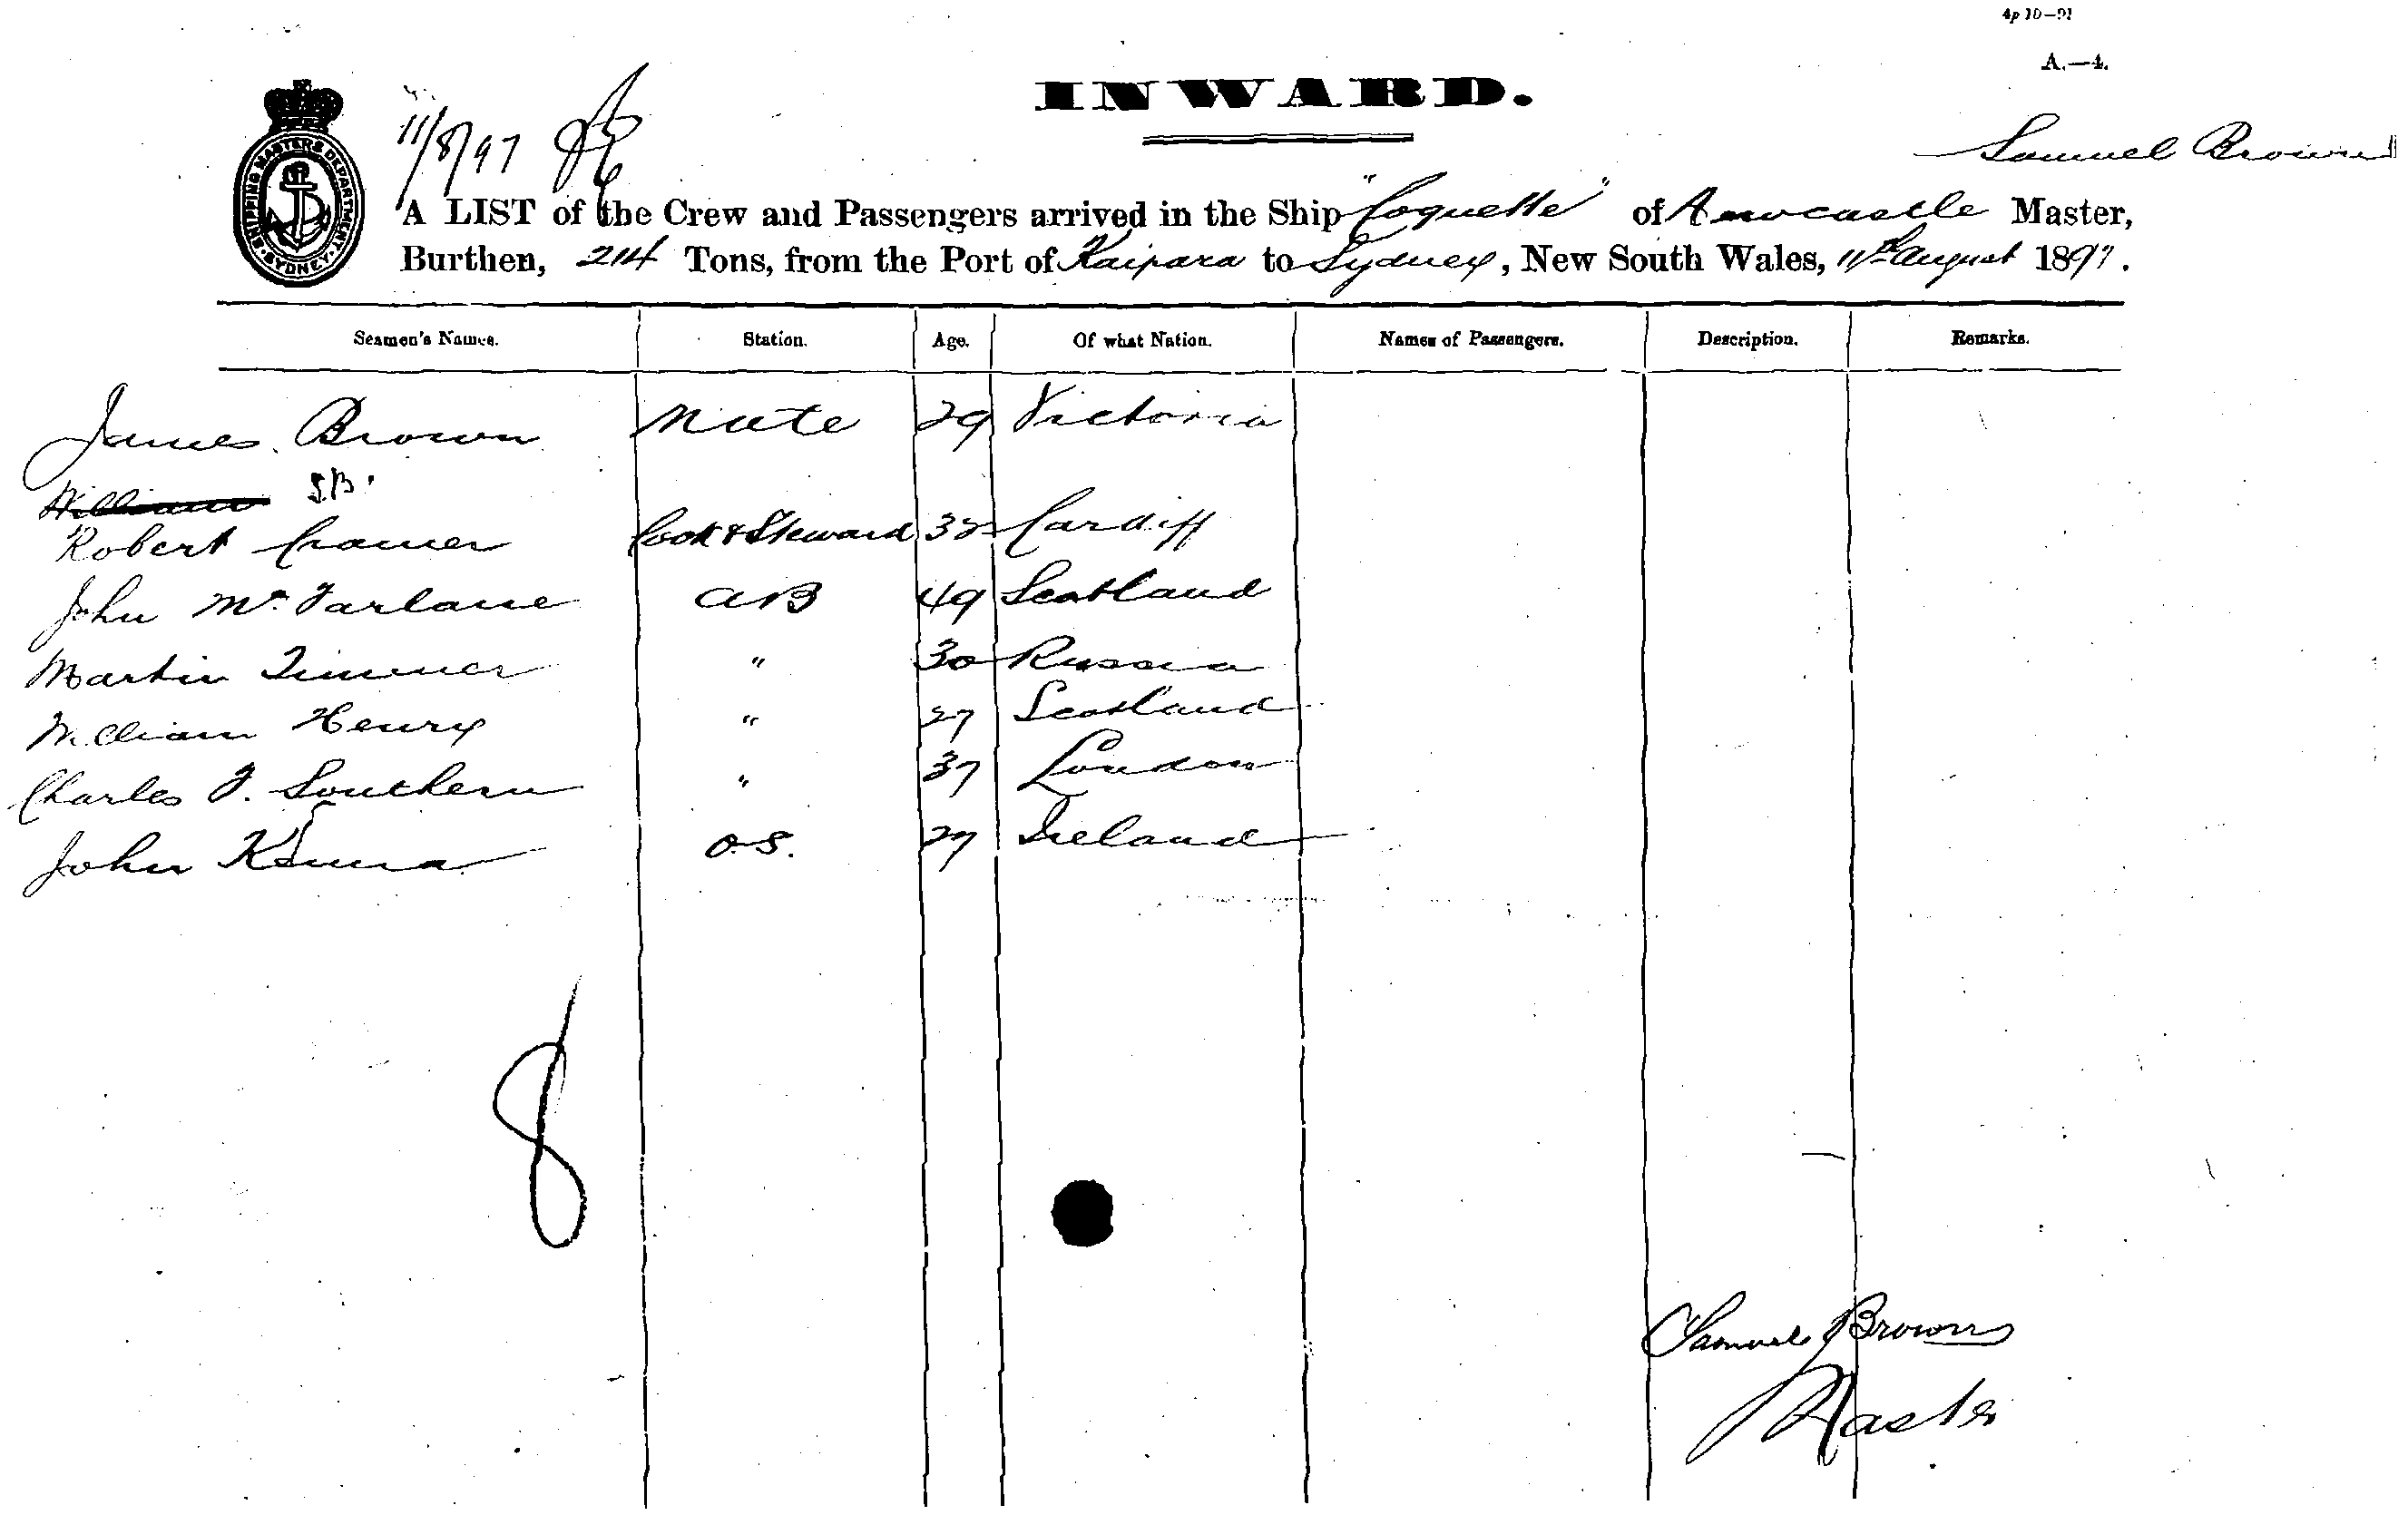 4p 10—91
A.—4.
INWARD.
SHIPPING MASTERS DEPARTMENT SYDNEY
11/8/97
Samuel Brown
A LIST of the Crew and Passengers arrived in the Ship "Coquette" of Newcastle Master,
Burthen, 214 Tons, from the Port of Kaipara to Sydney, New South Wales, 11th August 1897.
Seamen's Names. Station. Age. Of what Nation. Names of Passengers. Description. Remarks.
James Brown Mate 29 Victoria
William S.B.
Robert Cramer Cook & Steward 32 Cardiff
John McFarlane AB 49 Scotland
Martin Timmer " 30 Russia
William Henry " 27 Scotland
Charles F. Southern " 37 London
John O.S. 27 Ireland
8
Samuel Brown
Master